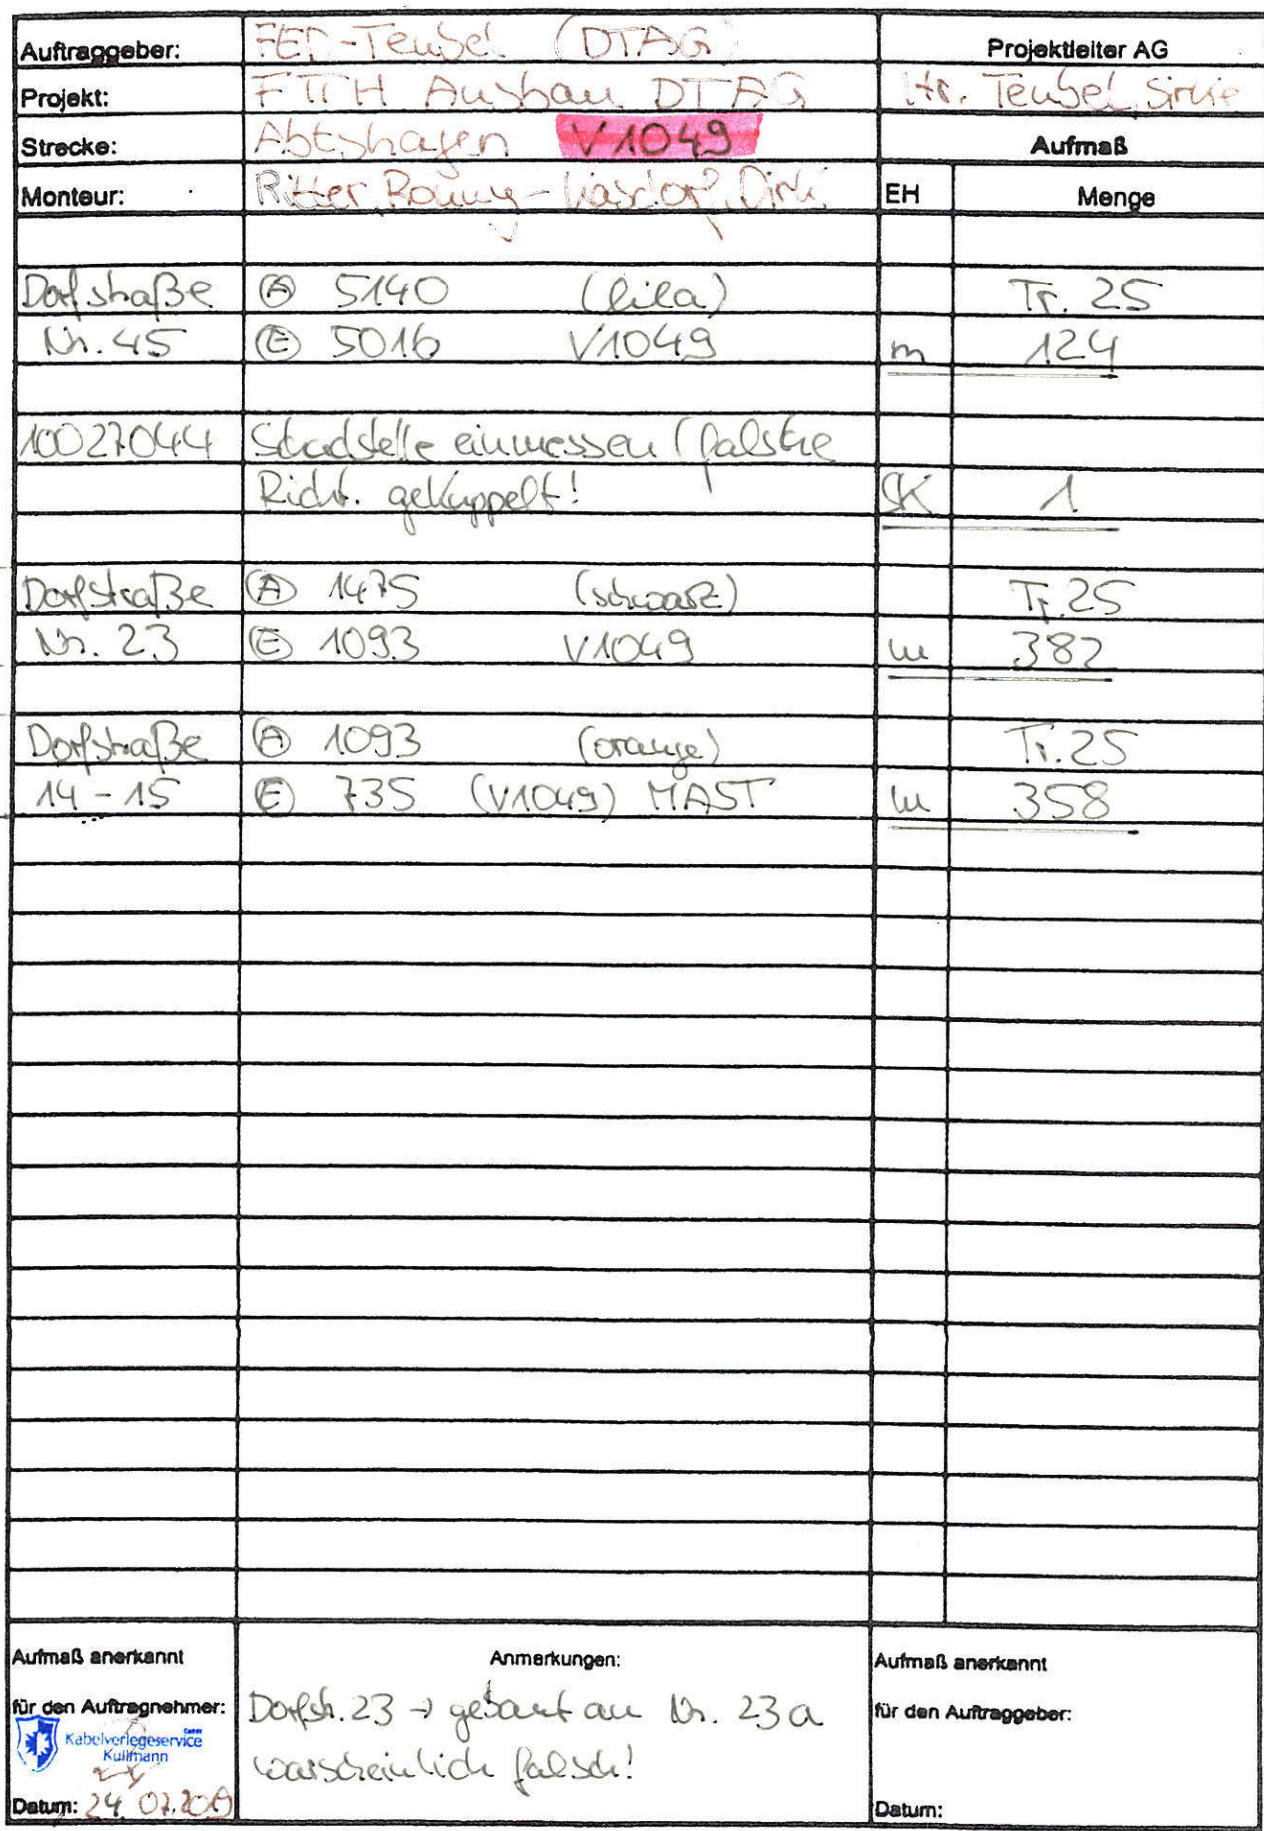 Auftraggeber: FED-Teubel (DTAG) Projektleiter AG
Projekt: FTTH Ausbau DTAG Hr. Teubel,
Strecke: Abtshagen V1049 Aufmaß
Monteur: Ritter, Ronny - Dirk EH Menge
Dorfstraße Ⓐ 5140 (lila) Tr. 25
Nr. 45 Ⓔ 5016 V1049 m 124
10027044 Stadstelle einmessen (falsche
Richt. gekuppelt! SK 1
Dorfstraße Ⓐ 1475 (schwarz) Tr. 25
Nr. 23 Ⓔ 1093 V1049 m 382
Dorfstraße Ⓐ 1093 (orange) Tr. 25
14 - 15 Ⓔ 735 (V1049) MAST m 358
Aufmaß anerkannt
für den Auftragnehmer:
Kabelverlegeservice GmbH
Kullmann
Datum: 24.07.2019
Anmerkungen:
Dorfstr. 23 → gebaut an Nr. 23a
warscheinlich falsch!
Aufmaß anerkannt
für den Auftraggeber:
Datum: